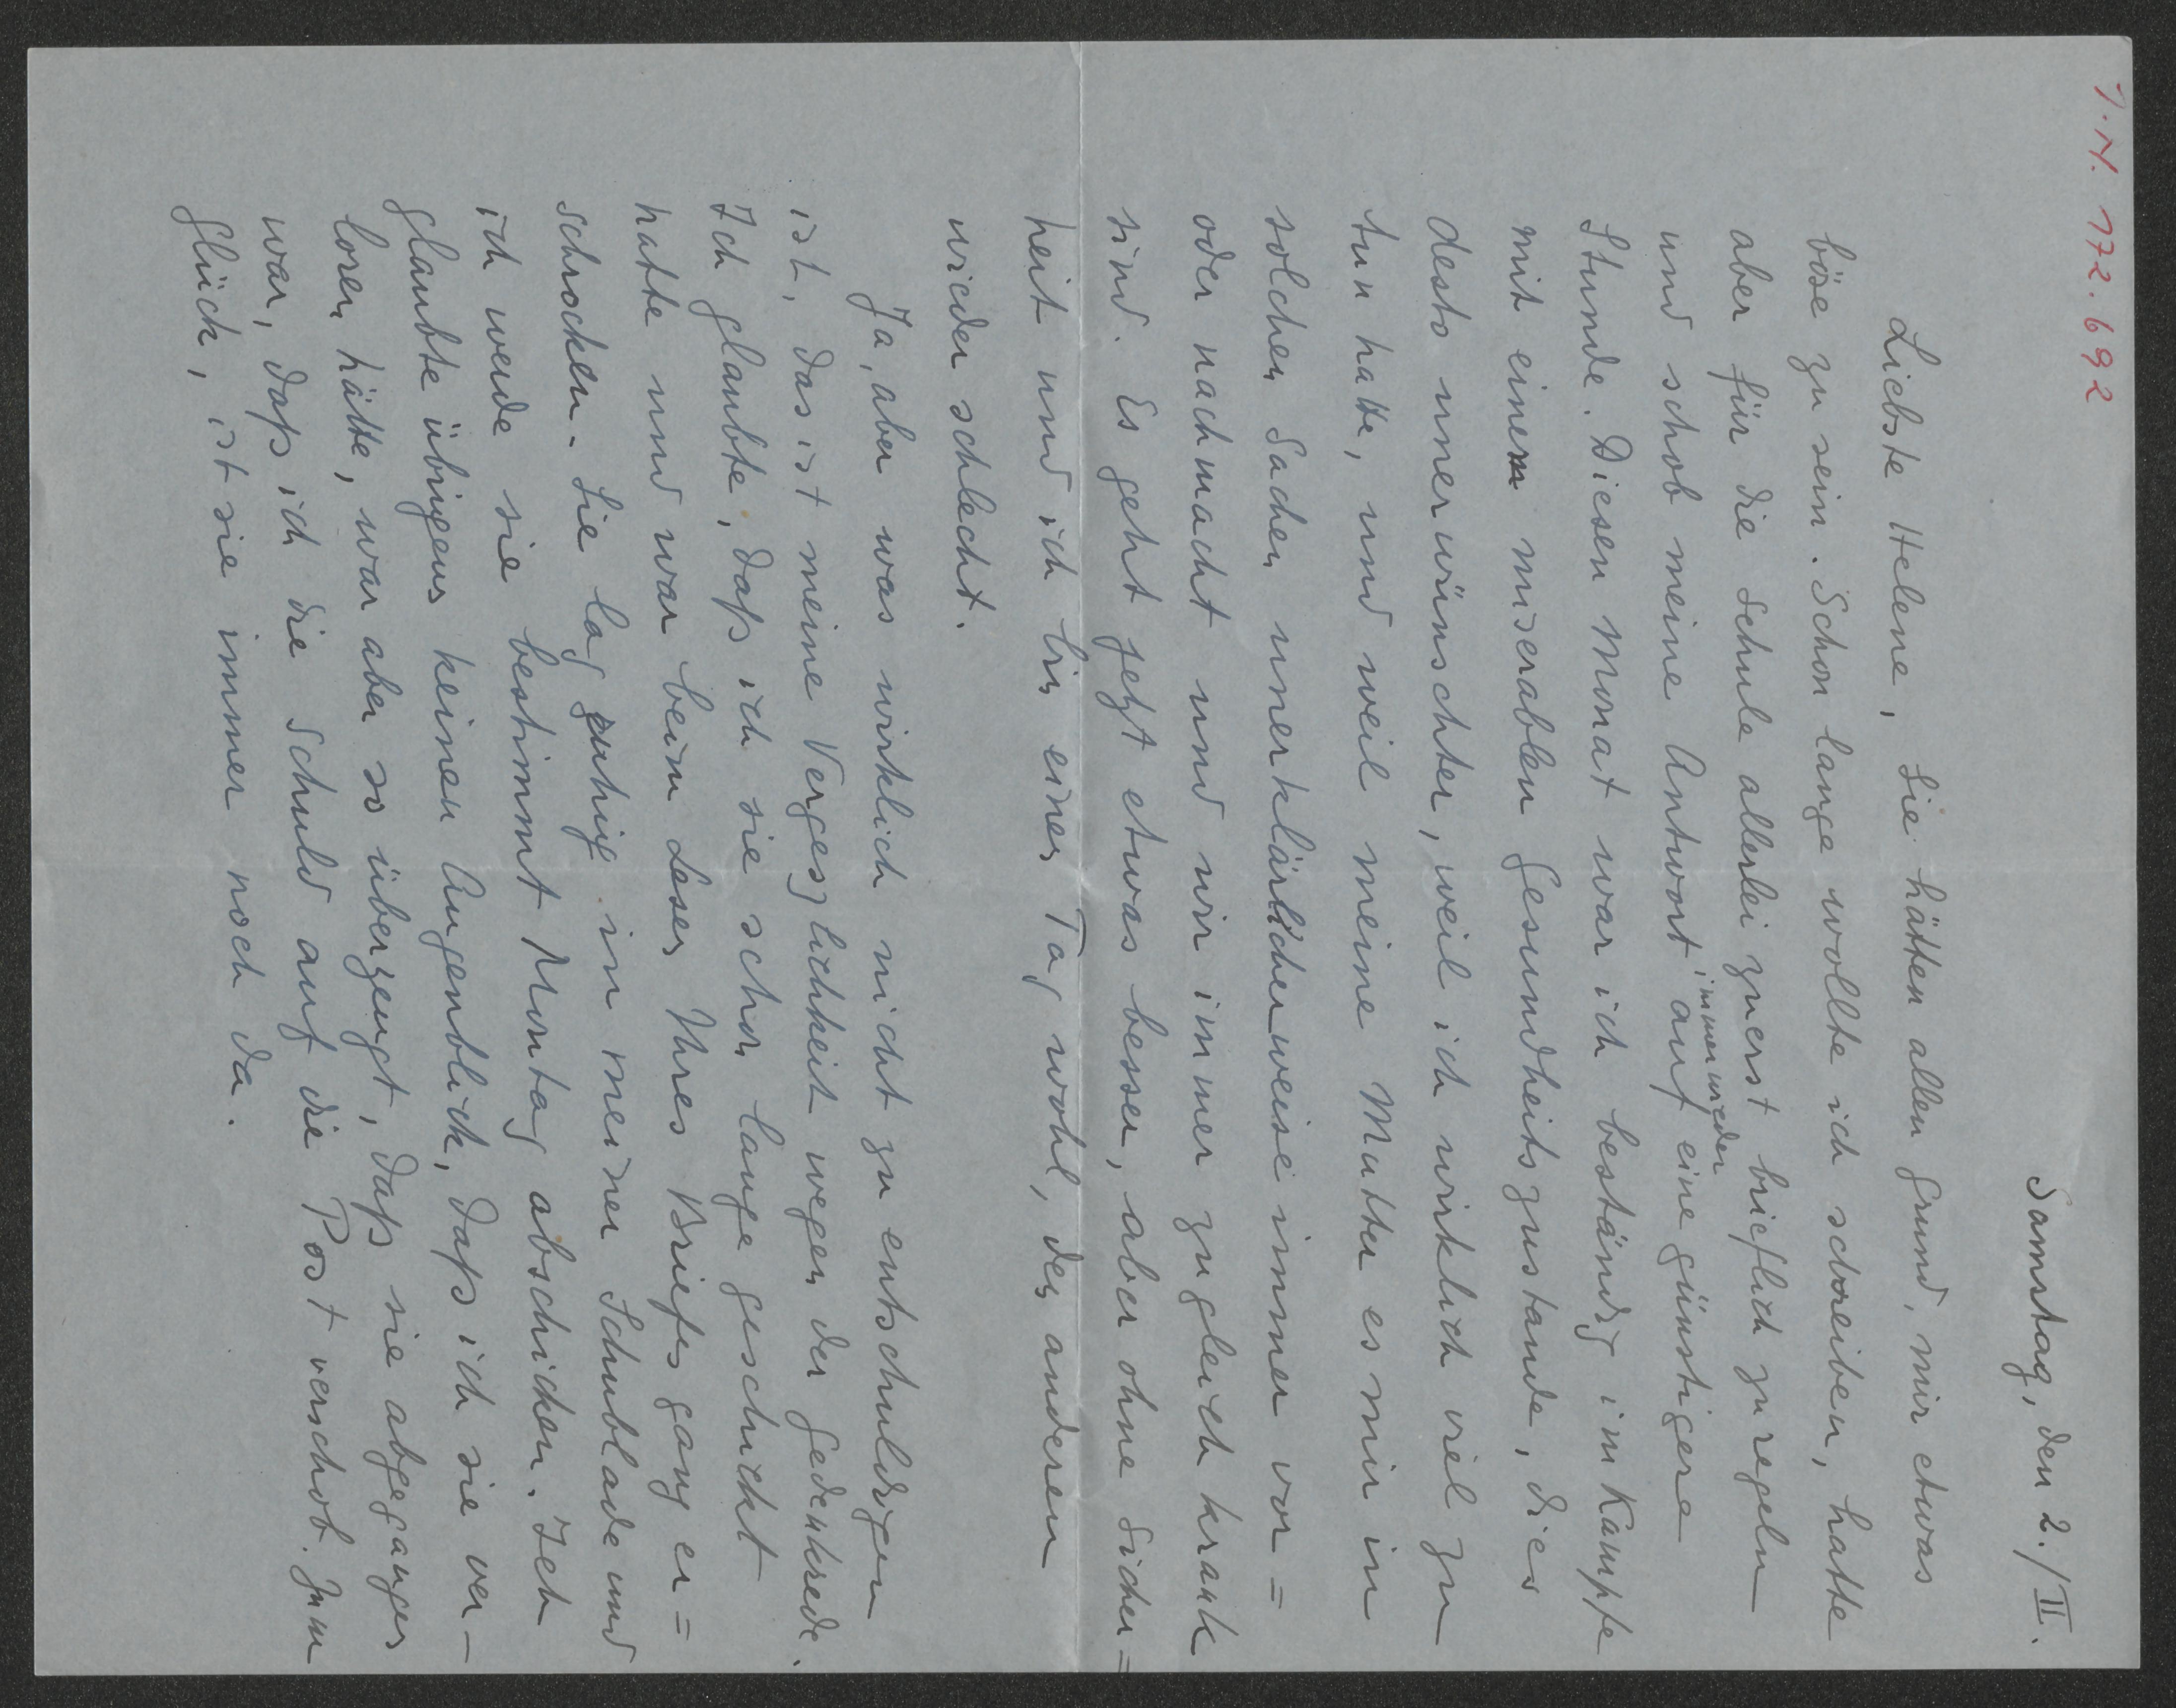 I.N. 172.692
Samstag, den 2./II.
Liebste Helene, Sie hätten allen Grund, mir etwas
böse zu sein. Schon lange wollte ich schreiben, hatte
aber für die Schule allerlei zuerst brieflich zu regeln
und schob meine Antwort immer wieder auf eine günstigere
Stunde. Diesen Monat war ich beständig im Kampfe
mit einem miserablen Gesundheitszustande, dies
desto unerwünschter, weil ich wirklich viel zu
tun hatte, und weil meine Mutter es mir in
solchen Sachen unerklärlicherweise immer vor=
oder nachmacht und wir immer zugleich krank
sind. Es geht jetzt etwas besser, aber ohne Sicher=
heit und ich bin einen Tag wohl, den anderen
wieder schlecht.
Ja, aber was wirklich nicht zu entschuldigen
ist, das ist meine Vergesslichkeit wegen der Gedenkrede.
Ich glaubte, daß ich sie schon lange geschickt
hatte und war beim Lesen Ihres Briefes ganz er=
schrocken. Sie lag ruhig in meiner Schublade und
ich werde sie bestimmt Montag abschicken. Ich
glaubte übrigens keinen Augenblick, daß ich sie ver-
loren hätte, war aber so überzeugt, daß sie abgegangen
war, daß ich die Schuld auf die Post verschob. Zum
Glück, ist sie immer noch da.